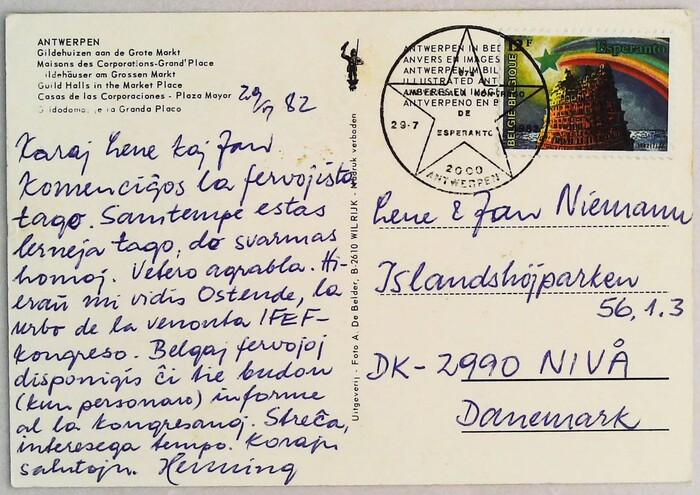 ANTWERPEN
Gildehuizen aan de Grote Markt
Maisons des Corporations-Grand'Place
Gildehäuser am Grossen Markt
Guild Halls in the Market Place
Casas de las Corporaciones - Plaza Mayor
Gildodomoj de la Granda Placo
29/7 82
Karaj Lene kaj Jan
Komenciĝos la fervojista
tago. Samtempe estas
lerneja tago, do svarmas
homoj. Vetero agrabla. Hi-
eraŭ mi vidis Ostende, la
urbo de la venonta IFEF-
kongreso. Belgaj fervojoj
disponigis ĉi tie budon
(kun personaro) informe
al la kongresanoj. Streĉa,
interesega tempo. Korajn
salutojn. Henning
Uitgeverij - Foto A. De Belder, B-2610 WILRIJK - Nadruk verboden
ANTWERPEN IN BEE
ANVERS EN IMAGES
ANTWERPEN IN BIL
ILLUSTRATED ANT
AMBERES EN IMAGE
ANTVERPENO EN B
KONGRESO
DE
ESPERANTO
29-7
2000
ANTWERPEN
12F
BELGIE-BELGIQUE
Esperanto
Lene & Jan Niemann
Islandshöjparken
56, 1.3
DK-2990 NIVÅ
Danemark